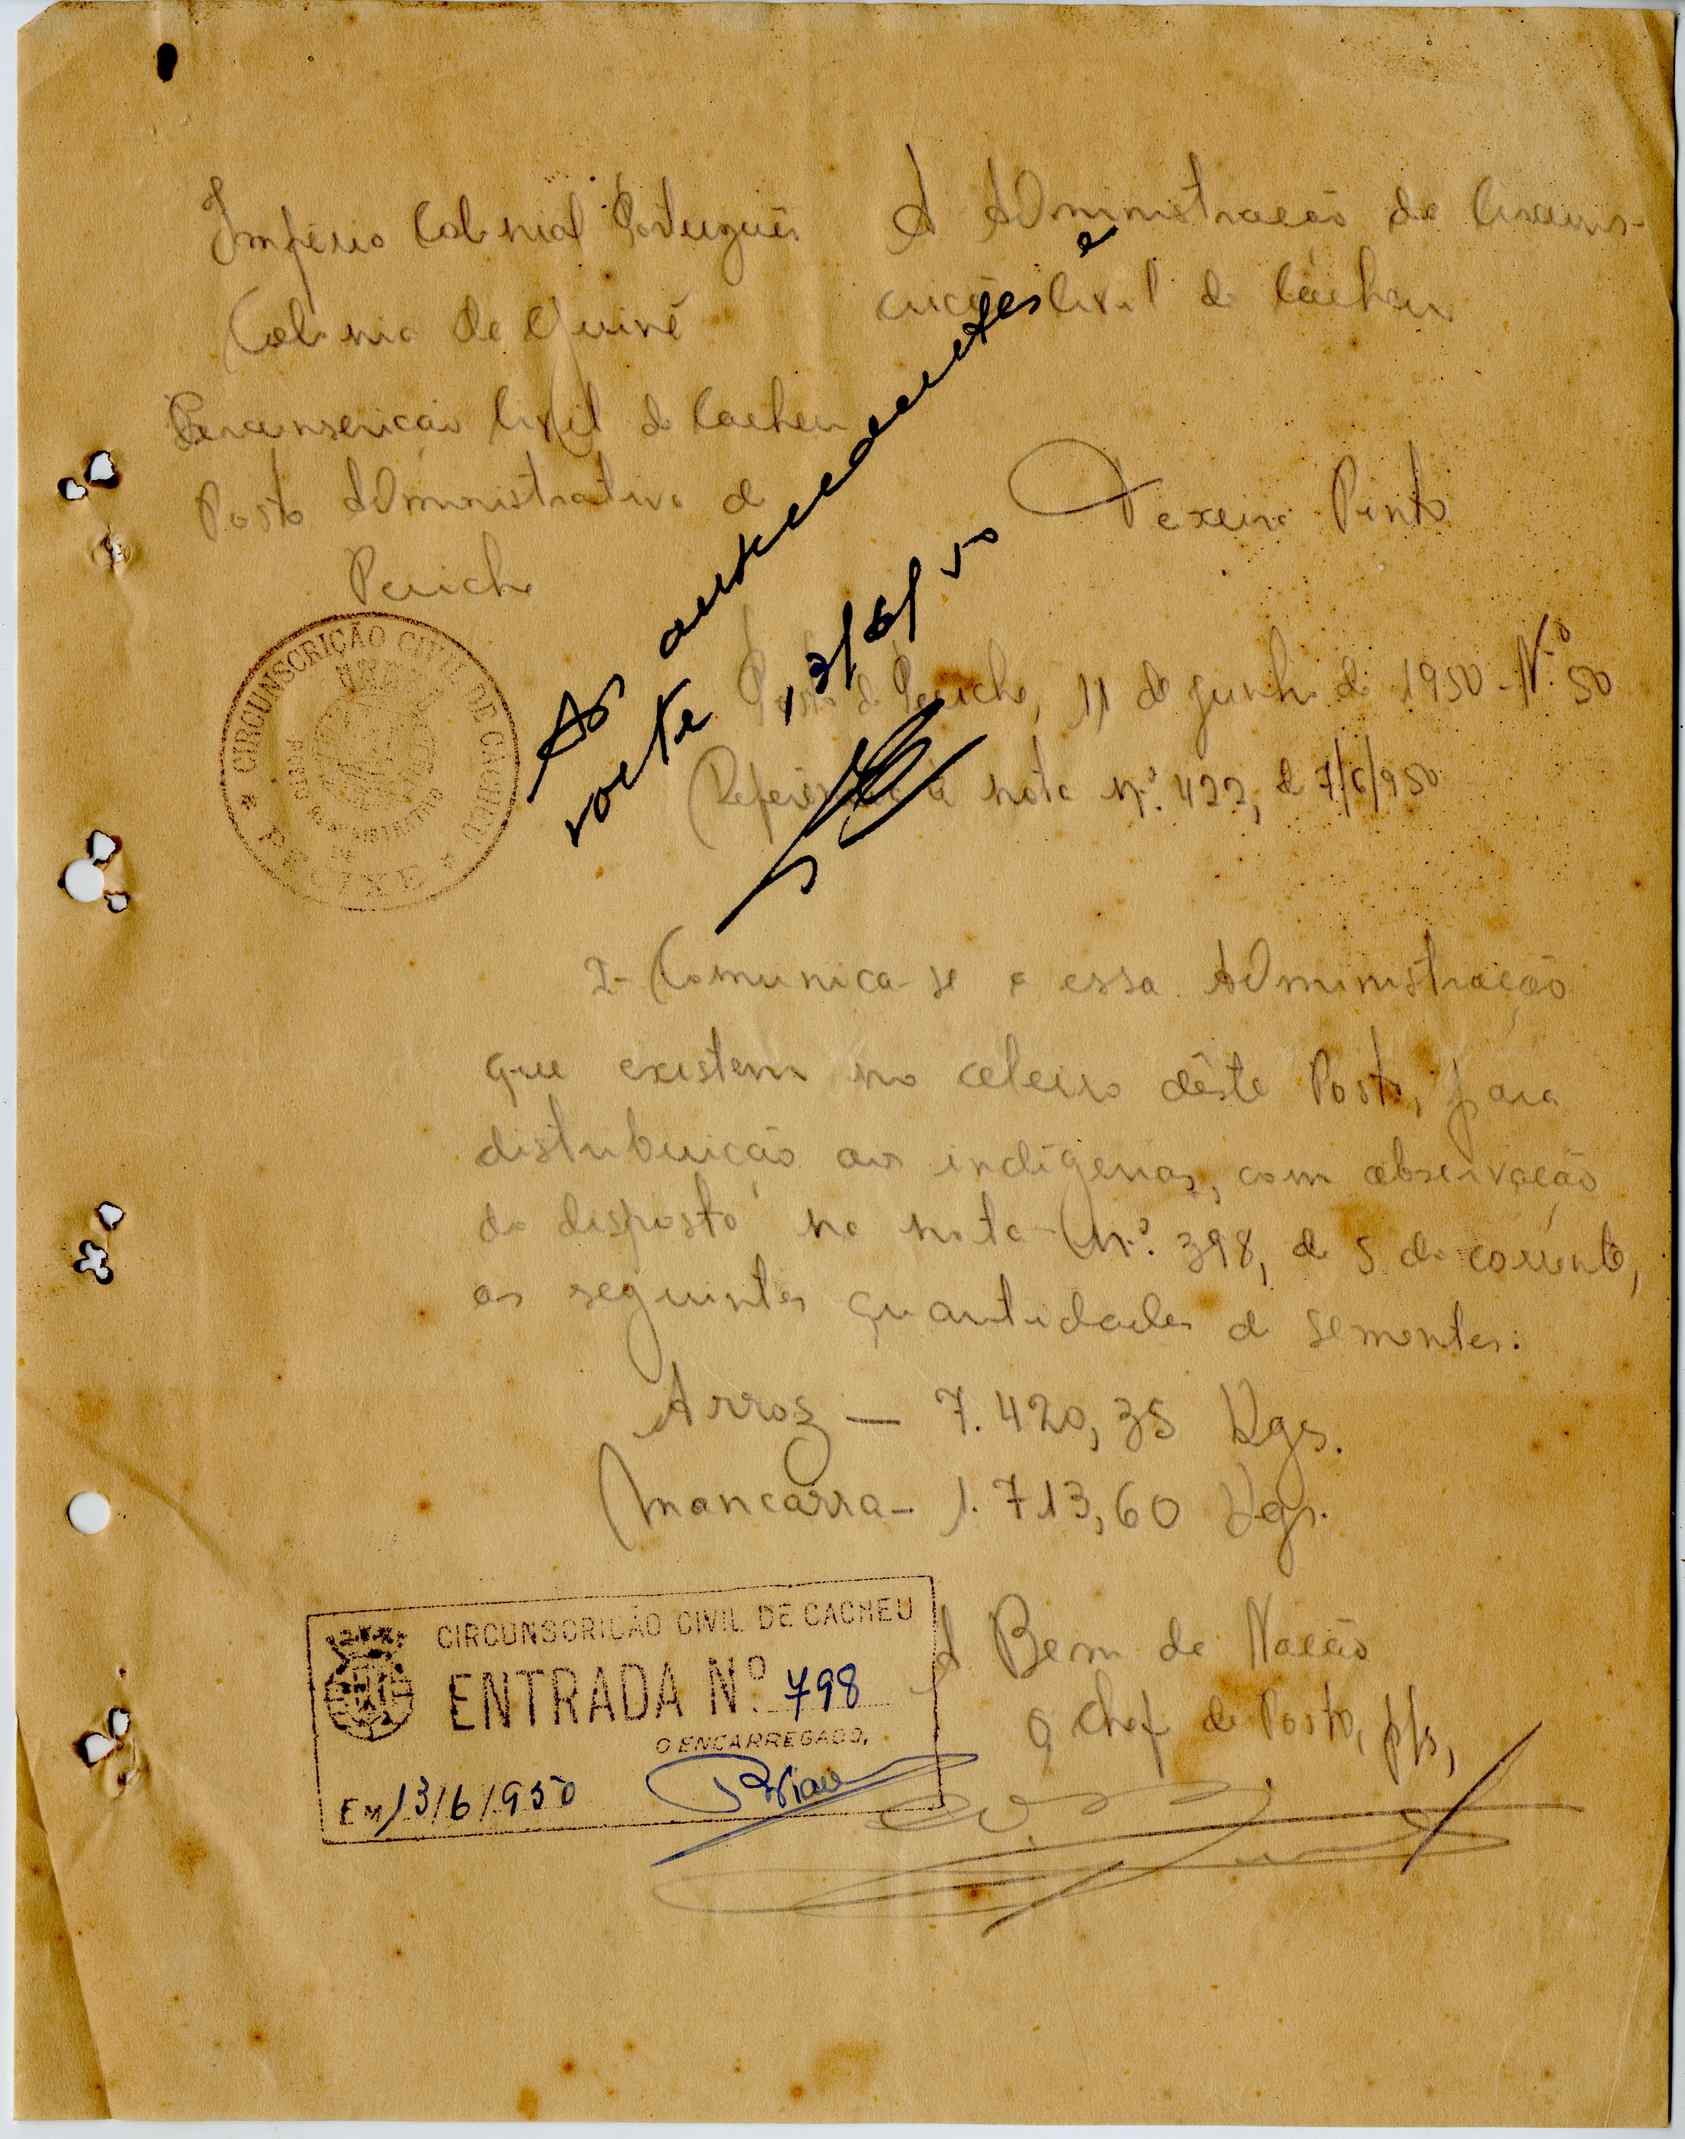 Império Colonial Português
Colonia da Guiné
Circunscrição Civil de Cacheu
Posto Administrativo de
Pecixe
À Administração da Circuns-
crição Civil de Cacheu
Teixeira Pinto
Aos antecedentes e
volte 13/6/50
CIRCUNSCRIÇÃO CIVIL DE CACHEU
PECIXE
Posto de Pecixe, 11 de junho de 1950 - N.º 50
Referência à nota nº. 422, de 7/6/950
I- Comunica-se a essa Administração
que existem no celeiro dêste Posto, para
distribuição aos indígenas, com observação
do disposto na nota nº. 398, de 5 do corrente,
as seguintes quantidades de sementes:
Arroz — 7.420,35 Kgs.
Mancarra - 1.713,60 Kgs.
A Bem da Nação
O Chefe de Posto,
CIRCUNSCRIÇÃO CIVIL DE CACHEU
ENTRADA Nº. 798
O ENCARREGADO,
EM 13/6/1950